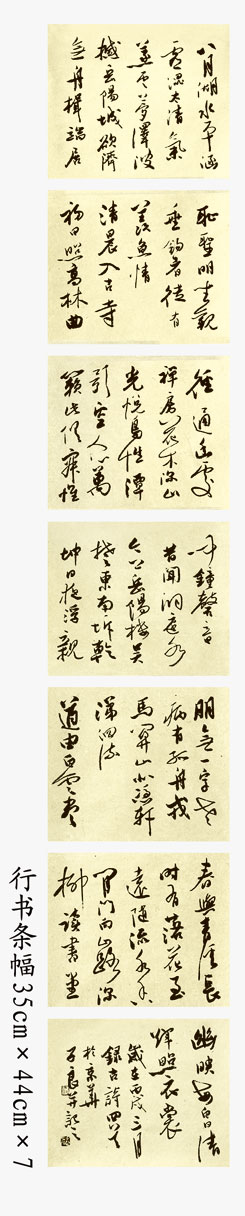 八月湖水平涵
虚混太清气
蒸云梦泽波
撼岳阳城欲济
无舟楫端居
耻圣明坐观
垂钓者徒有
羡鱼情
清晨入古寺
初日照高林曲
径通幽处
禅房花木深山
光悦鸟性潭
影空人心万
籁此俱寂惟
闻钟磬音
昔闻洞庭水
今上岳阳楼吴
楚东南坼乾
坤日夜浮亲
朋无一字老
病有孤舟戎
马关山北凭轩
涕泗流
道由白云尽
春与青溪长
时有落花至
远随流水香
闲门向山路深
柳读书堂
幽映每白日清
辉照衣裳
岁在丙戌三月
录古诗四首
于京华
子良并记之
行书条幅35cm×44cm×7